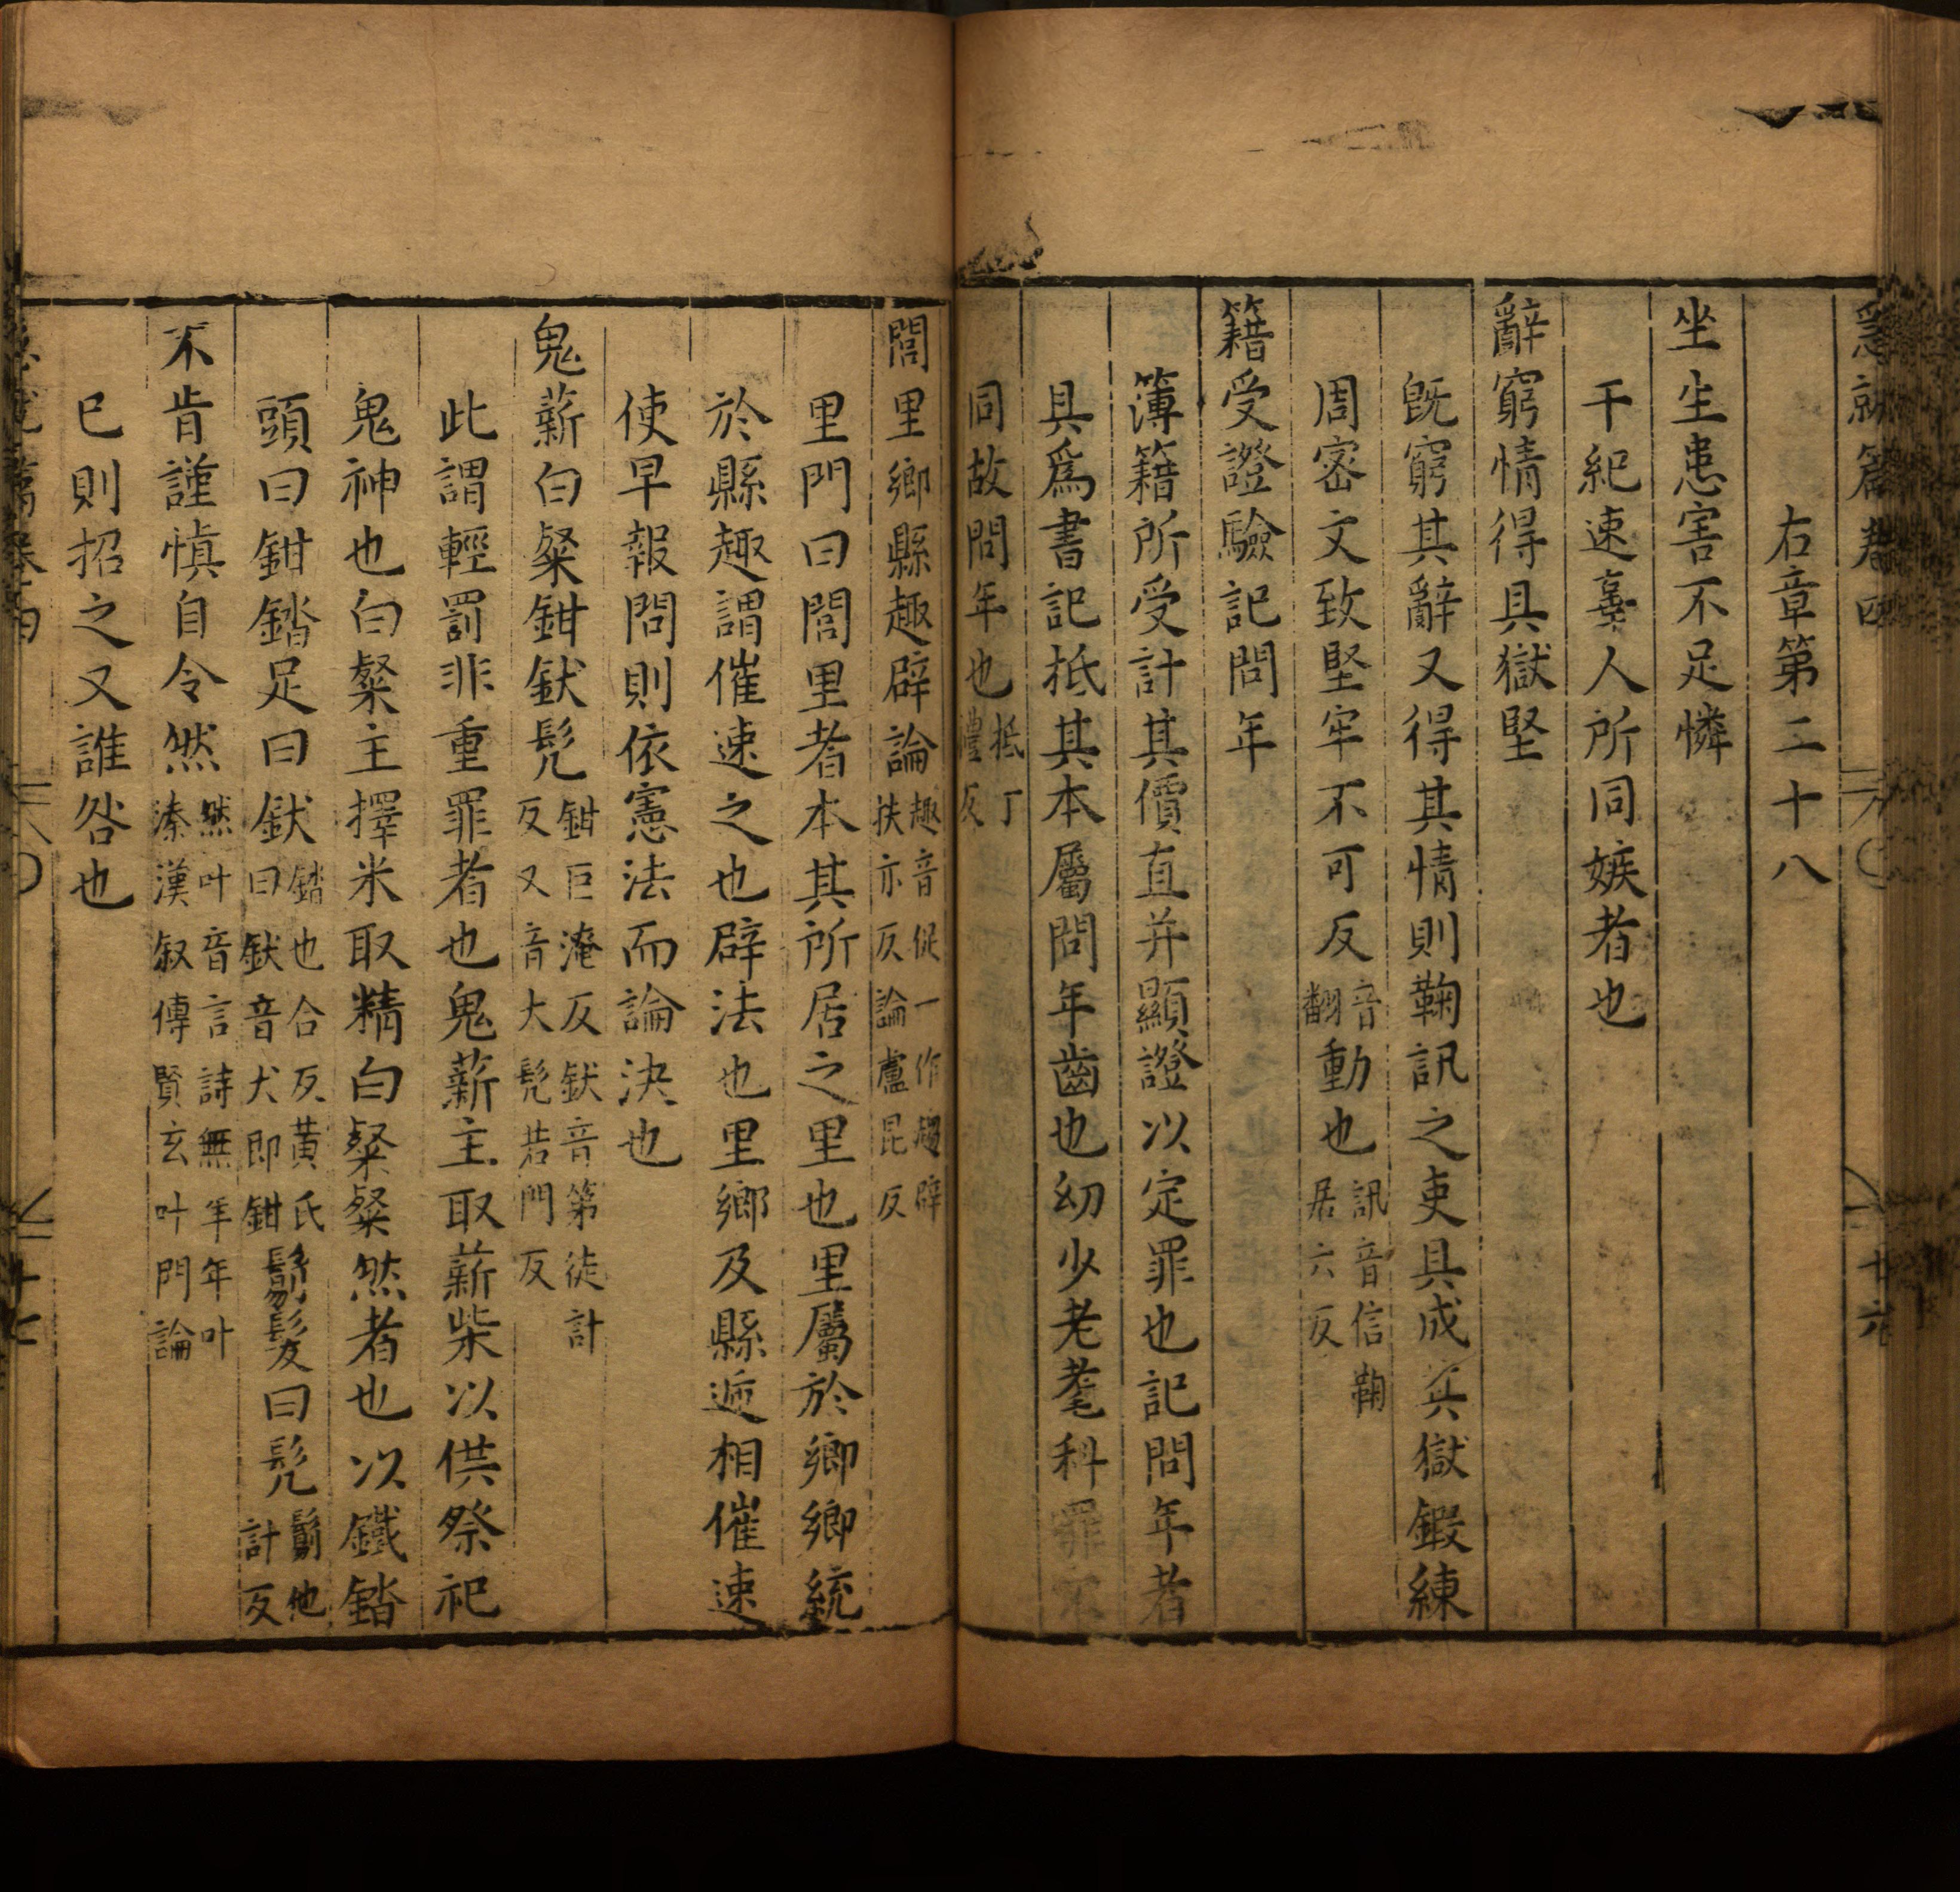 急就篇卷四
十六
右章第二十八
坐生患害不足憐
干紀速辜人所同嫉者也
辭窮情得具獄堅
旣窮其辭又得其情則鞫訊之吏具成其獄鍛練
周密文致堅牢不可反音翻動也訊音信鞫居六反
籍受證驗記問年
簿籍所受計其價直并顯證以定罪也記問年者
具爲書記抵其本屬問年齒也幼少老耄科罪不
同故問年也抵丁禮反
閭里鄉縣趣辟論趣音促一作趨辟扶亦反論盧昆反
里門曰閭里者本其所居之里也里屬於鄉鄉統
於縣趣謂催速之也辟法也里鄉及縣遞相催速
使早報問則依憲法而論決也
鬼薪白粲鉗釱髠鉗巨淹反釱音第徒計反又音大髠苦門反
此謂輕罰非重罪者也鬼薪主取薪柴以供祭祀
鬼神也白粲主擇米取精白粲粲然者也以鐵錔
頭曰鉗錔足曰釱錔也合反黃氏曰釱音犬即鉗鬄髮曰髠鬄他計反
不肯謹慎自令然然叶音言詩無羊年叶溱漢叙傳賢玄叶門論
已則招之又誰咎也
十七